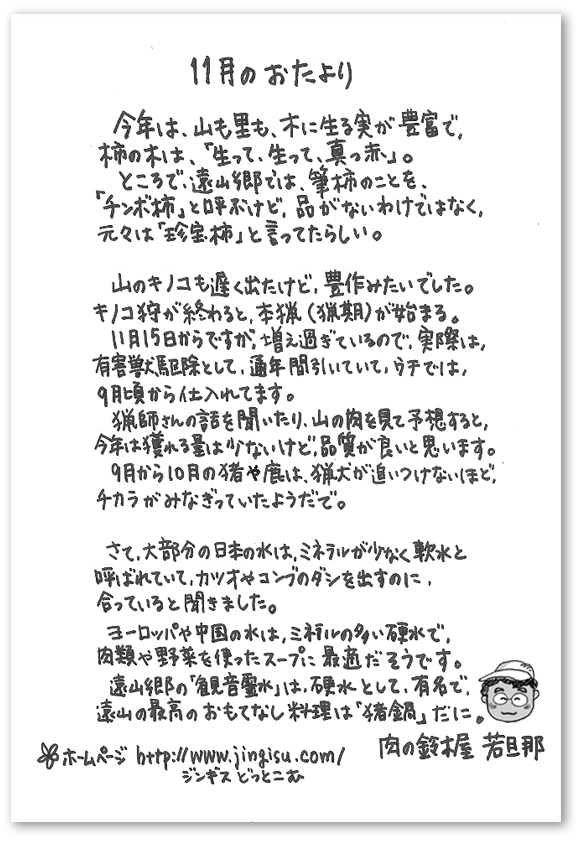 11月のおたより
今年は、山も里も、木に生る実が豊富で、
柿の木は、「生って、生って、真っ赤」。
ところで、遠山郷では、筆柿のことを、
「チンボ柿」と呼ぶけど、品がないわけではなく、
元々は「珍宝柿」と言ってたらしい。
山のキノコも遅く出たけど、豊作みたいでした。
キノコ狩が終わると、本猟(猟期)が始まる。
11月15日からですが、増え過ぎているので、実際は、
有害獣駆除として、通年間引いていて、ウチでは、
9月頃から仕入れてます。
猟師さんの話を聞いたり、山の肉を見て予想すると、
今年は獲れる量は少ないけど、品質が良いと思います。
9月から10月の猪や鹿は、猟犬が追いつけないほど、
チカラがみなぎっていたようだで。
さて、大部分の日本の水は、ミネラルが少なく軟水と
呼ばれていて、カツオやコンブのダシを出すのに、
合っていると聞きました。
ヨーロッパや中国の水は、ミネラルの多い硬水で、
肉類や野菜を使ったスープに最適だそうです。
遠山郷の「観音霊水」は、硬水として、有名で、
遠山の最高のおもてなし料理は「猪鍋」だに。
肉の鈴木屋 若旦那
ホームページ http://www.jingisu.com/
ジンギス どっとこむ